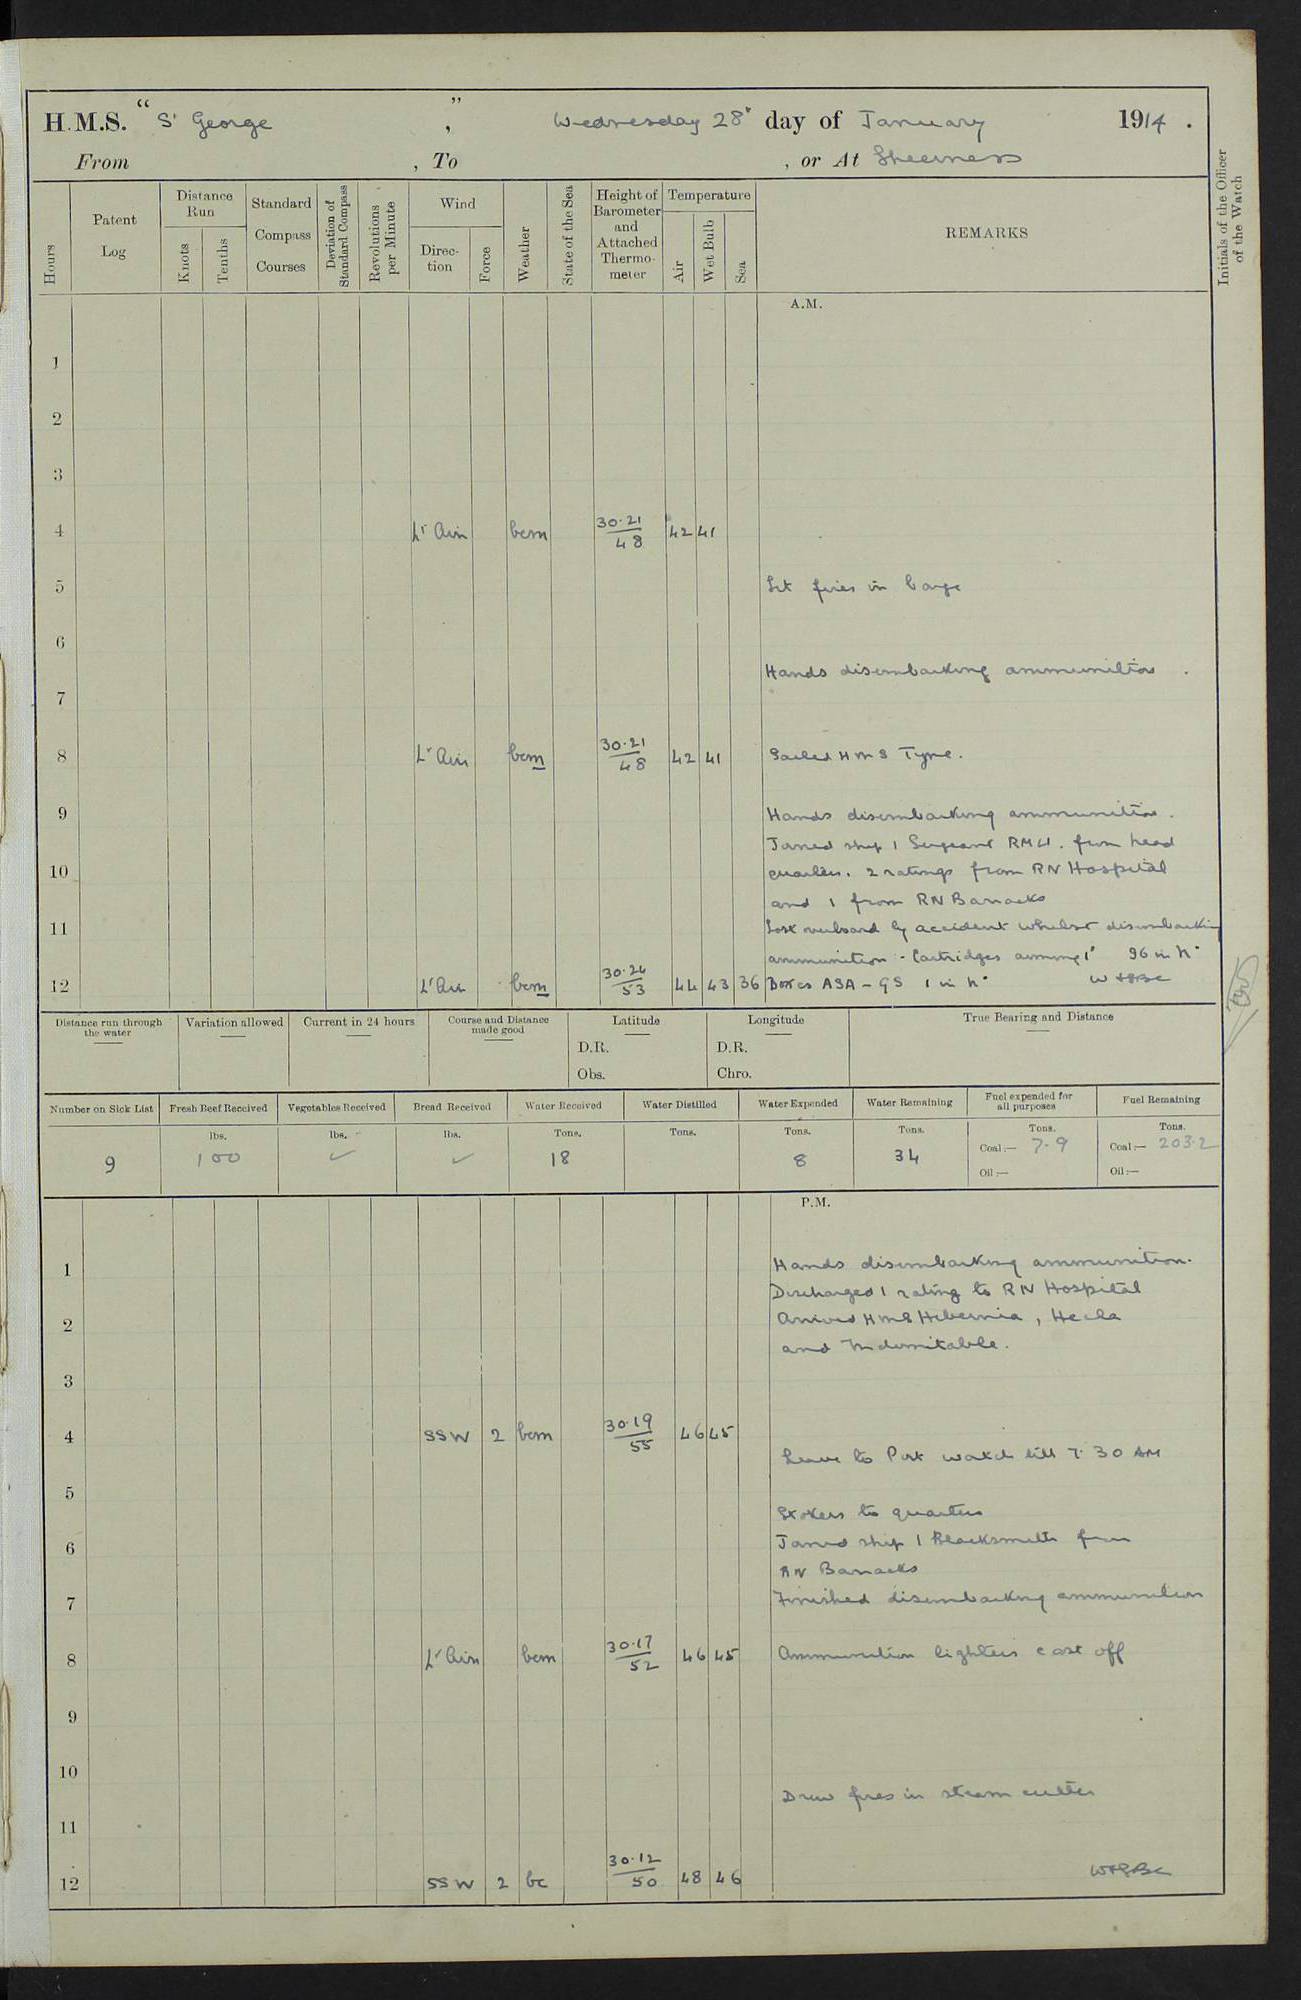 H.M.S. " St George ", Wednesday 28th day of January 1914.
From , To , or At Sheerness
Hours
Patent Log
Distance Run
Knots
Tenths
Standard Compass Courses
Deviation of Standard Compass
Revolutions per Minute
Wind
Direction
Force
Weather
State of the Sea
Height of Barometer and Attached Thermometer
Temperature
Air
Wet Bulb
Sea
REMARKS
Initials of the Officer of the Watch
A.M.
1
2
3
4 Lt Airs bcm 30.21/48 42 41
5 Lit fires in barge
6
Hands disembarking ammunition.
7
8 Lt Airs bcm 30.21/48 42 41 Sailed HMS Tyne.
9 Hands disembarking ammunition.
Joined ship 1 Sergeant RMLI. from head
10 quarters. 2 ratings from RN Hospital
and 1 from RN Barracks
11 Lost overboard by accident whilst disembarking
ammunition :- Cartridges aiming 1" 96 in No
12 Lt Airs bcm 30.24/53 44 43 36 Boxes ASA - GS 1 in No
Distance run through the water
Variation allowed
Current in 24 hours
Course and Distance made good
Latitude
D.R.
Obs.
Longitude
D.R.
Chro.
True Bearing and Distance
Number on Sick List
Fresh Beef Received
Vegetables Received
Bread Received
Water Received
Water Distilled
Water Expended
Water Remaining
Fuel expended for all purposes
Fuel Remaining
lbs. lbs. lbs. Tons. Tons. Tons. Tons. Tons. Tons.
9 100 ✓ ✓ 18 8 34 Coal:— 7.9 Coal:— 203.2
Oil:— Oil:—
P.M.
1 Hands disembarking ammunition.
Discharged 1 rating to RN Hospital
2 Arrived HMS Hibernia, Hecla
and Indomitable.
3
4 SSW 2 bcm 30.19/55 46 45
Leave to Port watch till 7.30 AM
5
Stokers to quarters
6 Joined ship 1 Blacksmith from
RN Barracks
7 Finished disembarking ammunition
8 Lt Airs bcm 30.17/52 46 45 Ammunition lighters cast off
9
10
Drew fires in steam cutter
11
12 SSW 2 bc 30.12/50 48 46